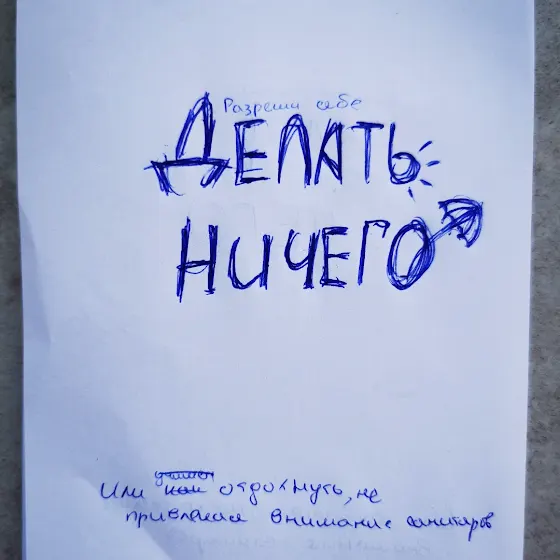 Разреши себе
ДЕЛАТЬ
НИЧЕГО
Или как отдохнуть, не
привлекая внимание санитаров